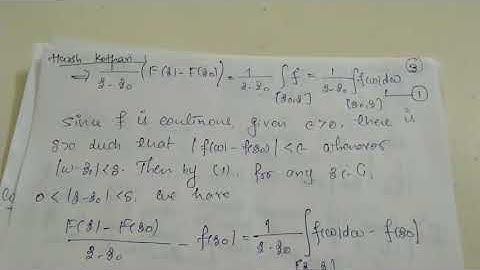 Harsh Kothari
③
⇒ 1/(z-z0) (F(z) - F(z0)) = 1/(z-z0) ∫[z0,z] f = 1/(z-z0) ∫[z0,z] f(w)dw — ①
Since f is continous, given ε>0, there is
δ>0 such that |f(w) - f(z0)| < ε whenever
|w-z0|<δ. Then by (1), for any z ∈ G,
0 < |z-z0| < δ, we have
(F(z) - F(z0))/(z-z0) - f(z0) = 1/(z-z0) ∫[z0,z] f(w)dw - f(z0)